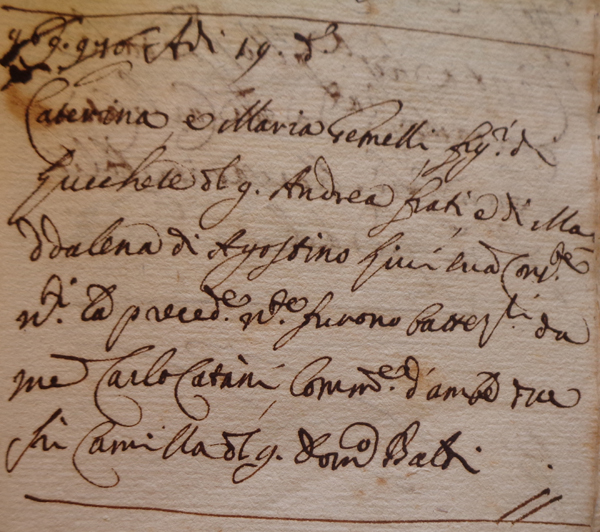 Adi 19. d.º
Caterina, e Maria Gemelli, fig.i d
del q. Andrea frati e di Ma
ddalena di Agostino sua Cons.e
n.i la preced.e n.te furono battez.ti da
me Carlo Catani, Comm.e d'ambe due
fù Camilla del q. Dom.o Balbi